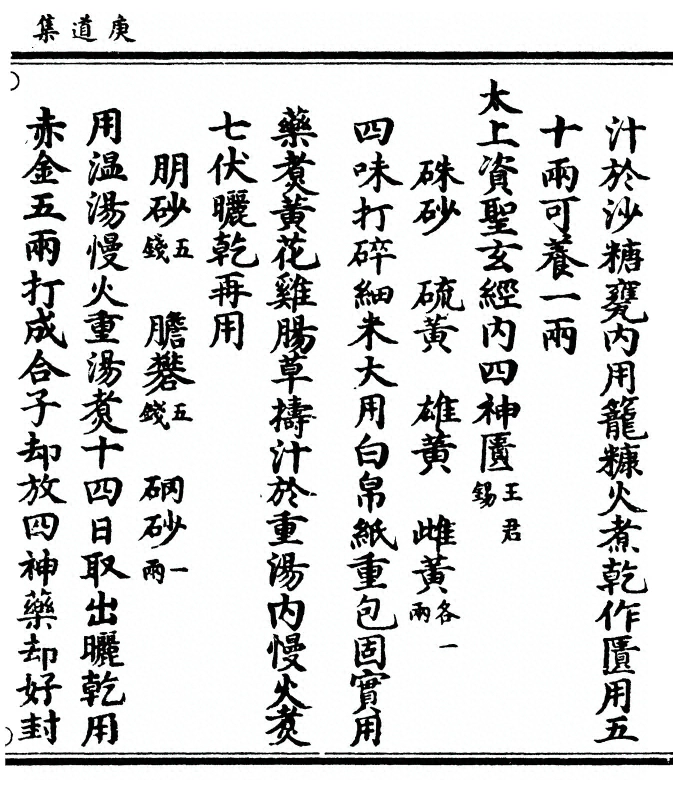 庚道集
汁於沙糖甕内用籠糠火煮乾作匱用五
十兩可養一兩
太上資聖玄經内四神匱王君錫
硃砂 硫黄 雄黄 雌黄各一兩
四味打碎細米大用白帛紙重包固實用
藥煑黄花雞腸草擣汁於重湯内慢火煑
七伏曬乾再用
朋砂五錢 膽礬五錢 硇砂一兩
用温湯慢火重湯煑十四日取出曬乾用
赤金五兩打成合子却放四神藥却好封